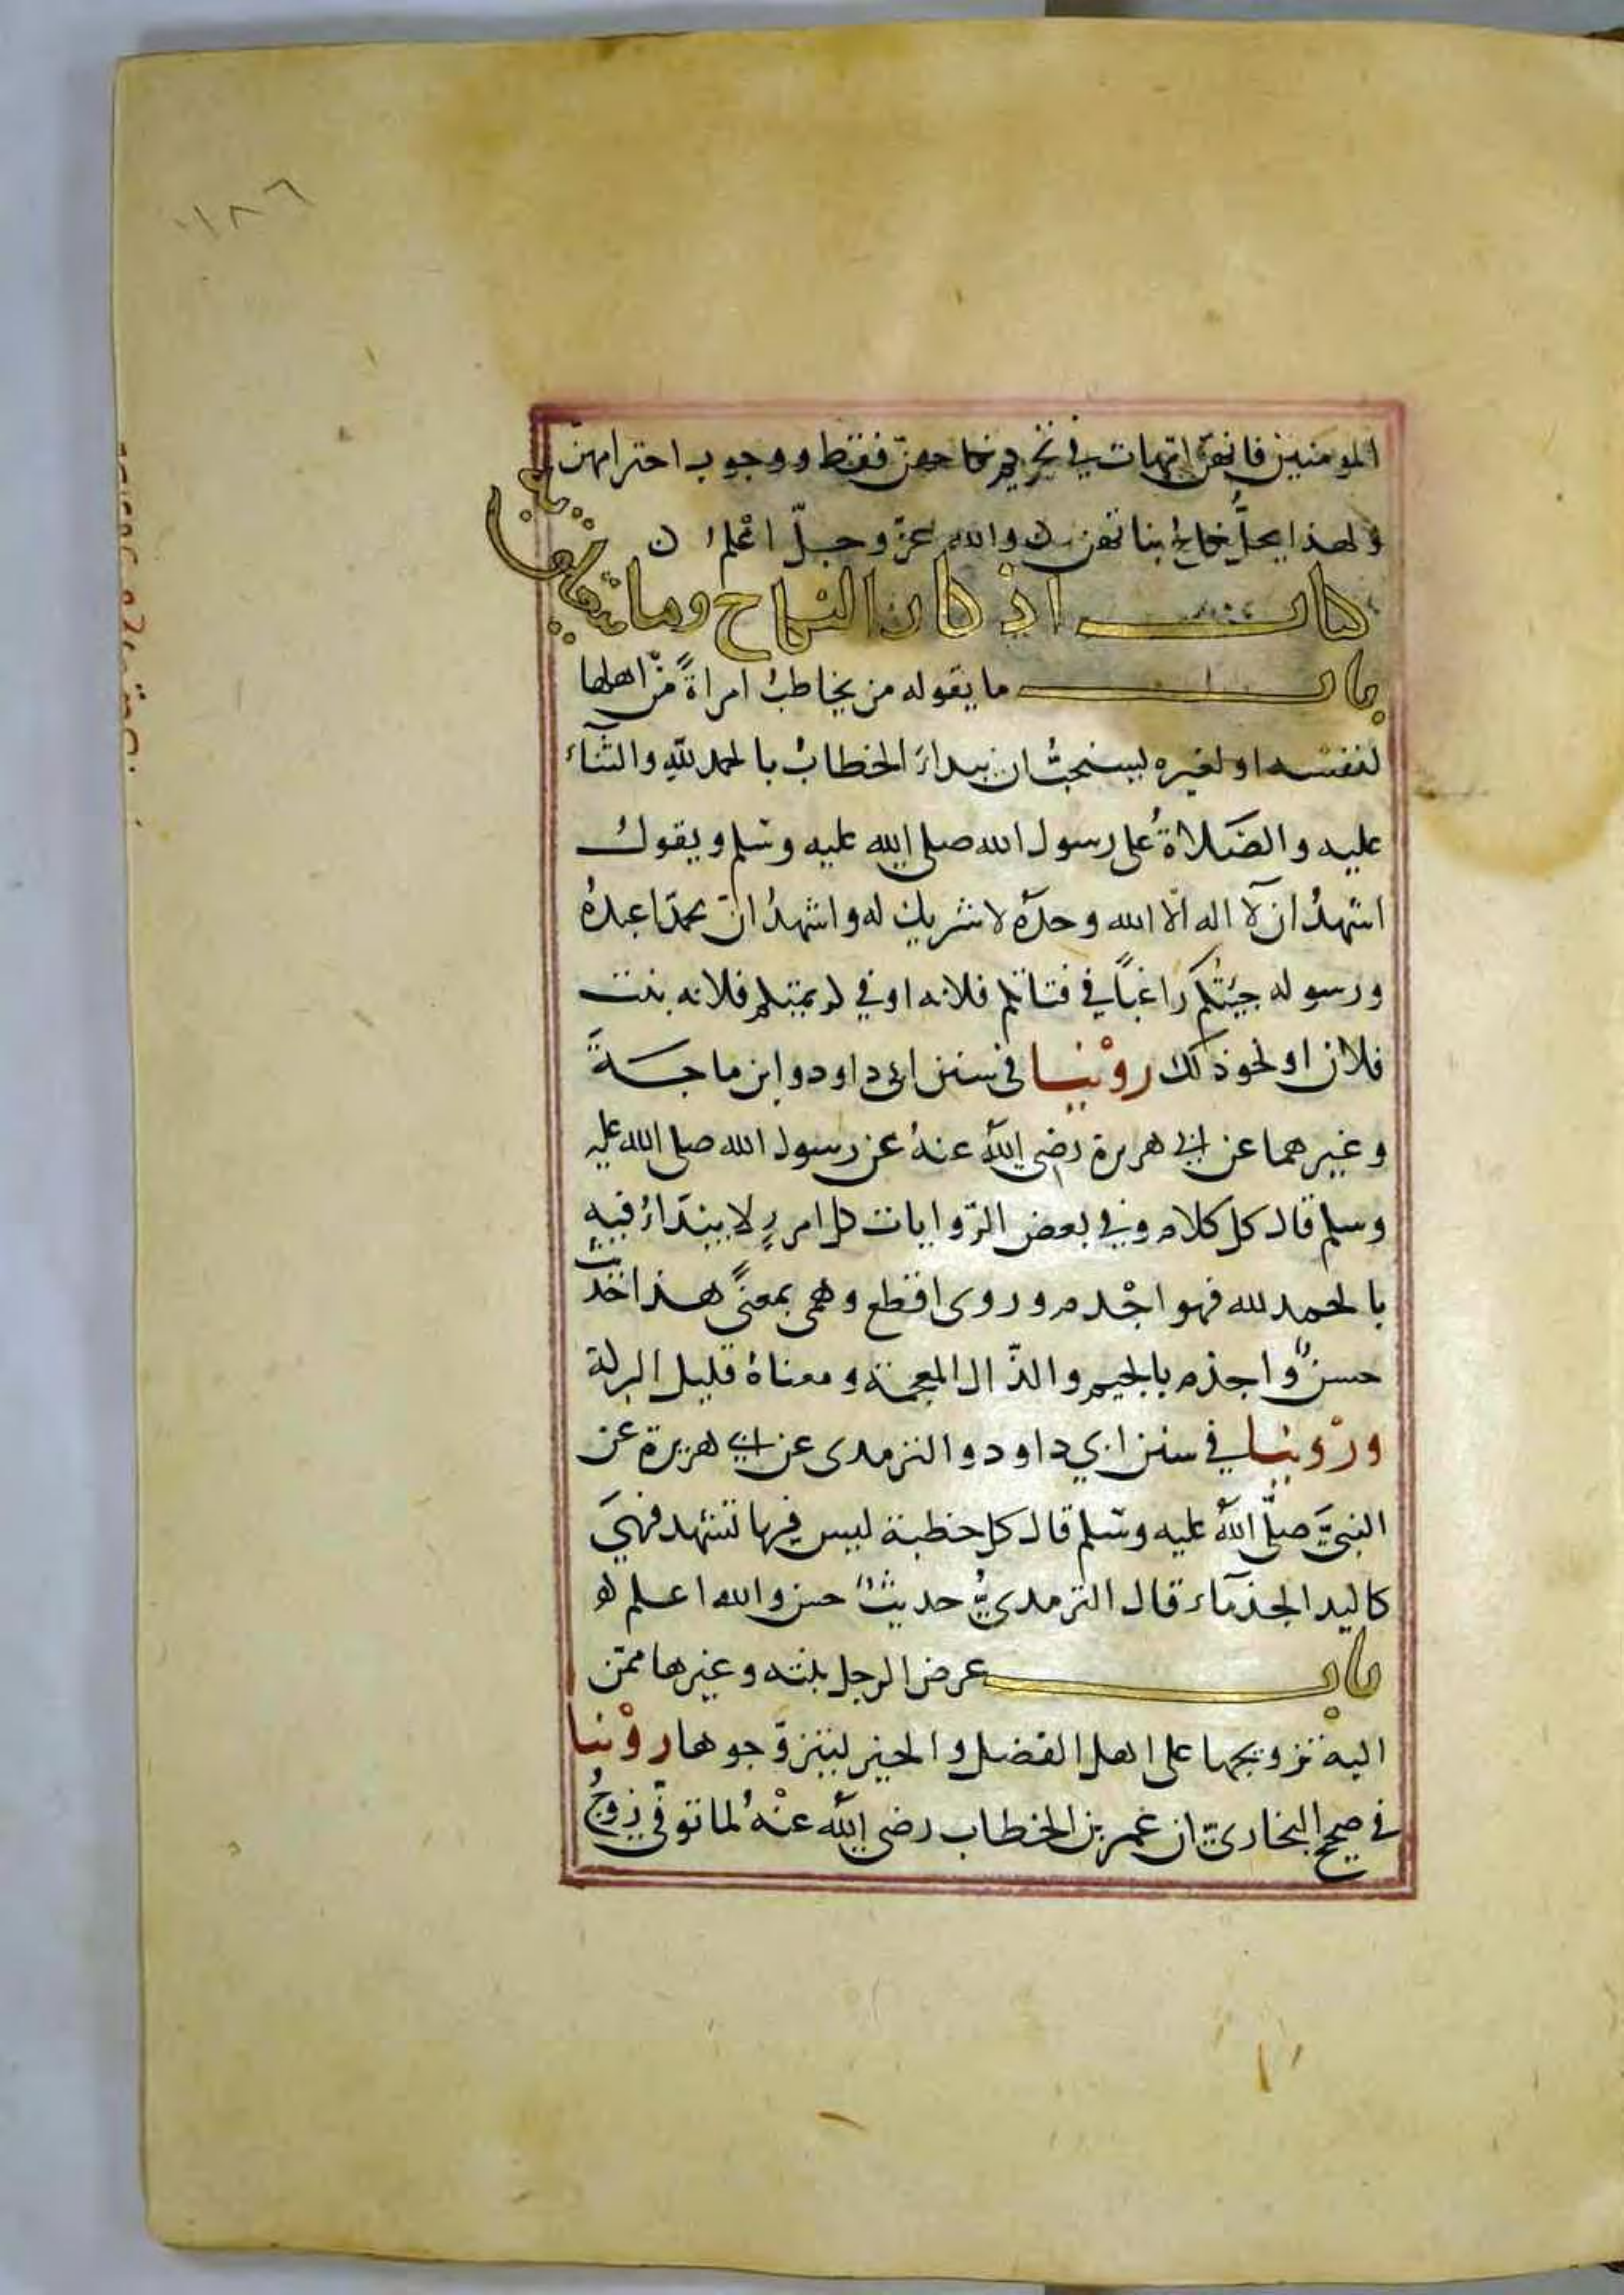 ١٨٦
المومنين فانهن امهات في تحريم نكاحهن فقط ووجوب احترامهنّ
ولهذا يحلّ نكاح بناتهن والله عزّ وجلّ اعْلم ن
كتاب اذكار النكاح وما يتعلق به
باب ما يقوله من يخاطبُ امراةً منْ اهلها
لنفسه او لغيره يستحبُّ ان يبداَ الخطابُ بالحمد للّٰه والثَّناء
عليه والصَّلاةُ على رسول الله صلى الله عليه وسَلم ويقولُ
اشهدُ ان لَا اله الّا الله وحدَه لا شريك له واشهدُ انّ محمّدا عبدهُ
ورسوله جيئتُكم راغباً في فتاتكم فلانه او في كريمتكم فلانه بنت
فلان او نحو ذلك روْينا في سنن ابي داود وابن ماجةَ
وغيرهما عن ابي هريرة رضي اللهُ عنهُ عن رسول الله صلى الله عليه
وسلم قال كل كلام وفي بعض الرّوايات كل امرٍ لا يبتدَاءُ فيهِ
بالحمد لله فهو اجْذم وروى اقطع وهى بمعنىً هذا حديثٌ
حسنٌ واجذم بالجيم والذّال المعجمة ومعناهُ قليل البركة
وروْينا في سنن ابي داود والترمدى عن ابي هريرة عن
النبيّ صلَّى اللهُ عليه وسَلم قال كل خطبة ليس فيها تشهد فهيَ
كاليد الجذمَاء قال الترمديُّ حديثٌ حسن والله اعلم
باب عرض الرجل بنته وغيرها ممّن
اليه تزويجها على اهل الفضل والخير ليتزوّجوها روْينا
في صحيح البخاريّ ان عمر بن الخطاب رضي اللهُ عنْهُ لما توفّي زوجُ